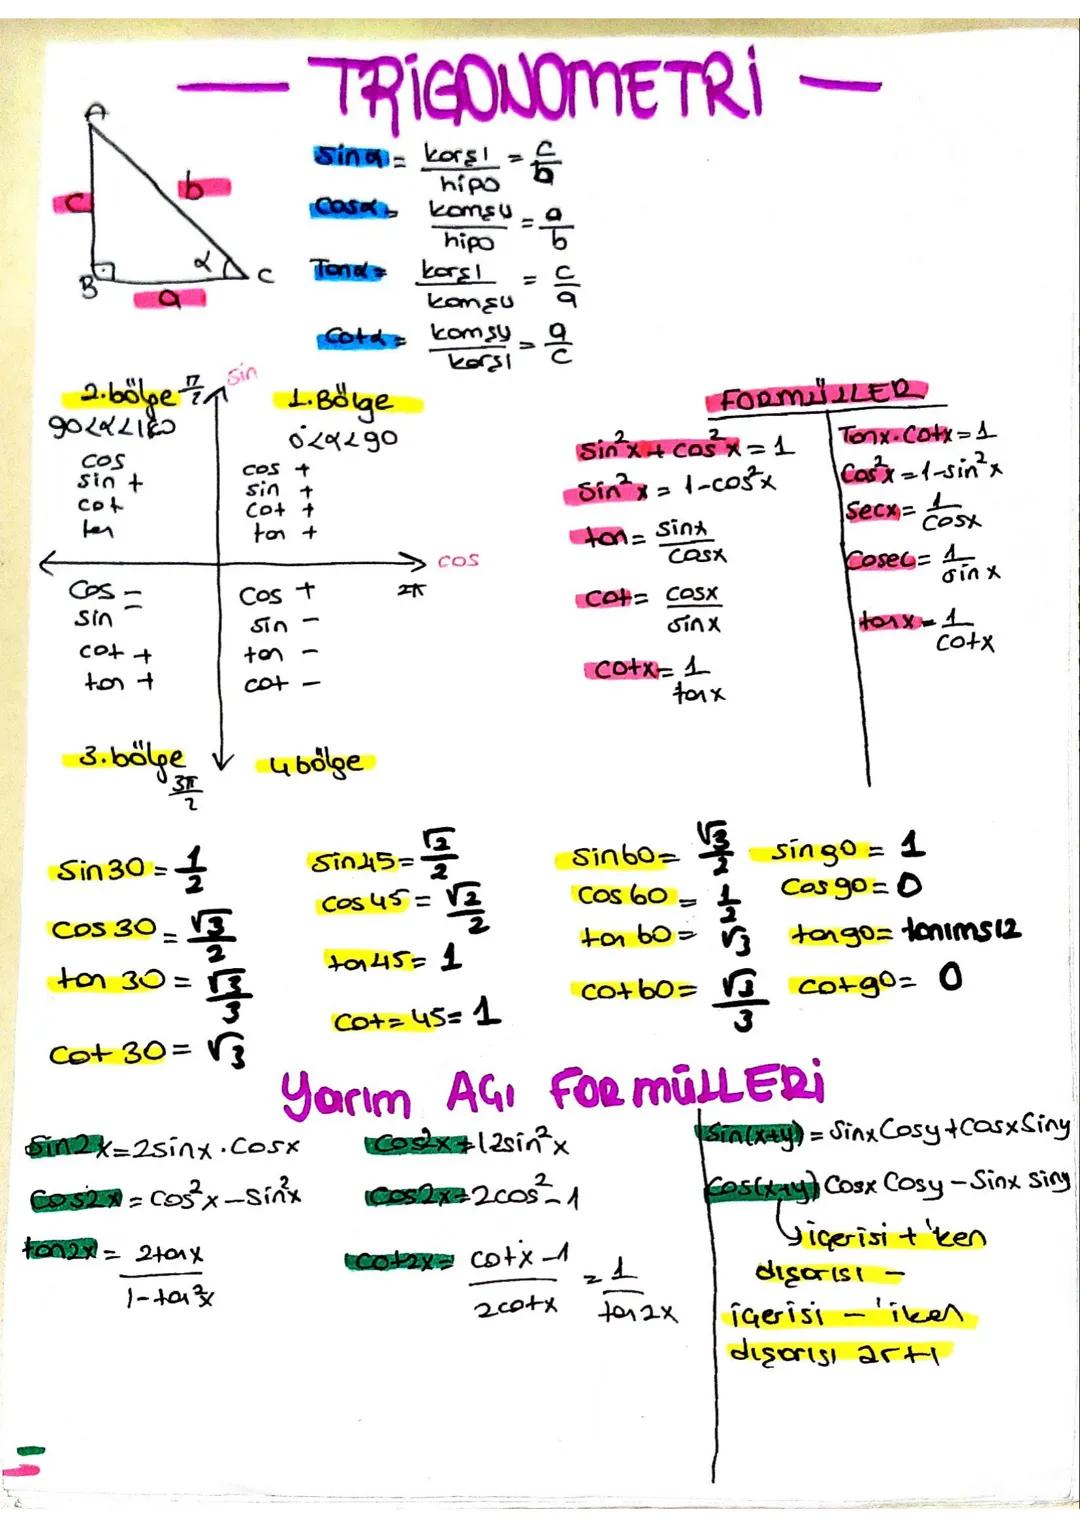 — TRİGONOMETRİ —
A
c
b
B
a
α
C
Sinα = karşı/hipo = c/b
Cosα = komşu/hipo = a/b
Tanα = karşı/komşu = c/a
Cotα = komşy/karşı = a/c
2.bölge π/2 sin
90<α<180
cos
sin +
cot
tan
1.Bölge
0°<α<90
cos +
sin +
cot +
tan +
cos
2π
Cos -
sin -
cot +
tan +
3.bölge
3π/2
cos +
sin -
tan -
cot -
4 bölge
FORMÜLLER
Sin²x + cos²x = 1
Sin²x = 1-cos²x
tan = sinx/cosx
cot = cosx/sinx
cotx = 1/tanx
Tanx.Cotx = 1
Cos²x = 1-sin²x
Secx = 1/cosx
Cosec = 1/sinx
tanx = 1/cotx
Sin30 = 1/2
cos 30 = √3/2
tan 30 = √3/3
cot 30 = √3
Sin45 = √2/2
cos 45 = √2/2
tan45 = 1
cot = 45 = 1
Sin60 = √3/2
cos 60 = 1/2
tan 60 = √3
cot60 = √3/3
sin90 = 1
Cos90 = 0
tan90 = tanımsız
cot90 = 0
Yarım AÇI FORMÜLLERİ
Sin2x = 2sinx.Cosx
Cos2x = cos²x - Sin²x
tan2x = 2tanx/1-tan²x
Cos2x = 1 2sin²x
Cos2x = 2cos² -1
cot2x = cot²x -1/2cotx = 1/tan2x
Sin(x+y) = Sinx Cosy + Cosx Siny
Cos(x+y) Cosx Cosy - Sinx Siny
içerisi + 'ken
dışarısı -
içerisi - 'iken
dışarısı artı